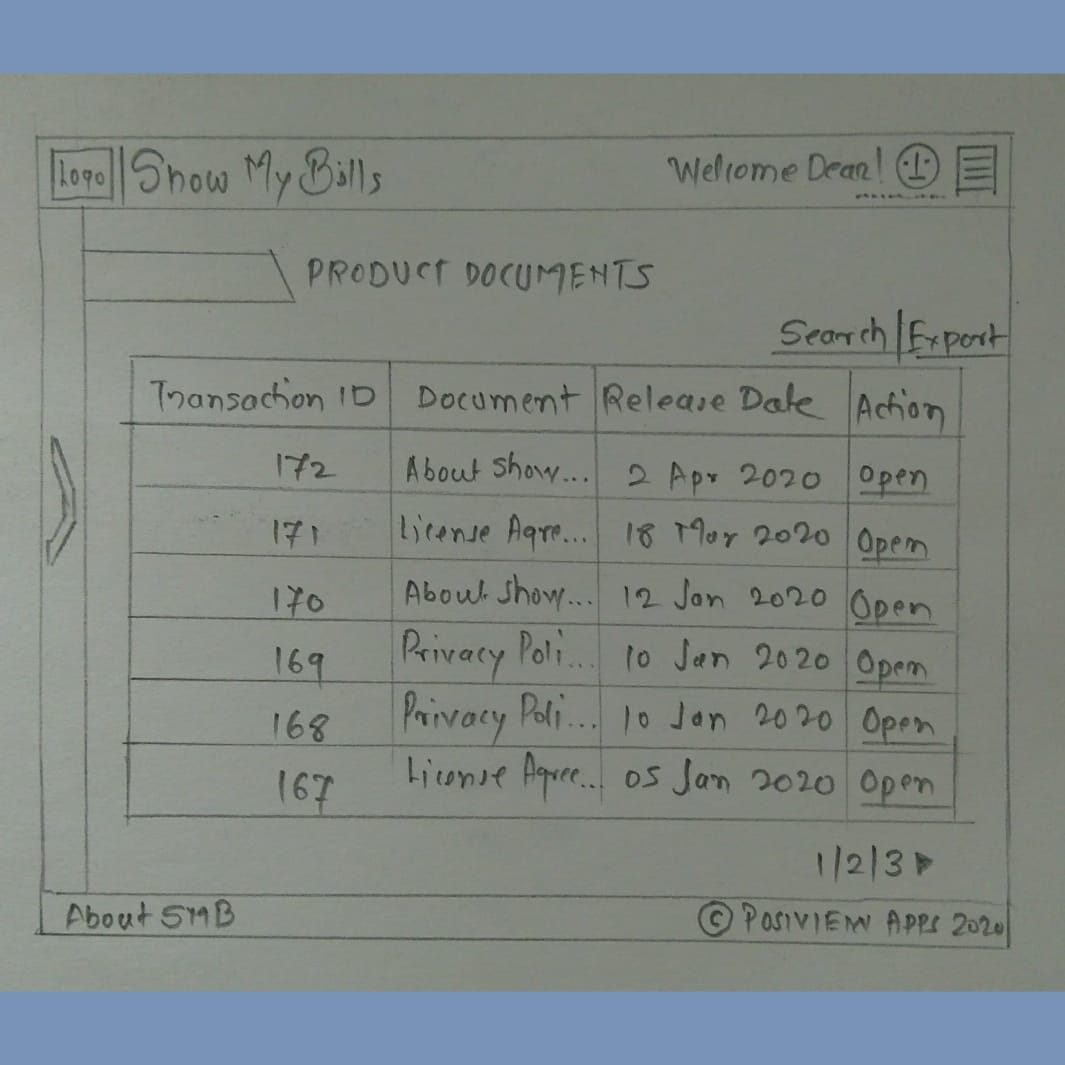 Logo | Show My Bills Welcome Dear!
PRODUCT DOCUMENTS
Search | Export
Transaction ID Document Release Date Action
172 About Show... 2 Apr 2020 Open
171 License Agre... 18 Mar 2020 Open
170 About Show... 12 Jan 2020 Open
169 Privacy Poli... 10 Jan 2020 Open
168 Privacy Poli... 10 Jan 2020 Open
167 License Agree... 05 Jan 2020 Open
1/2/3
About SMB © POSIVIEW APPS 2020